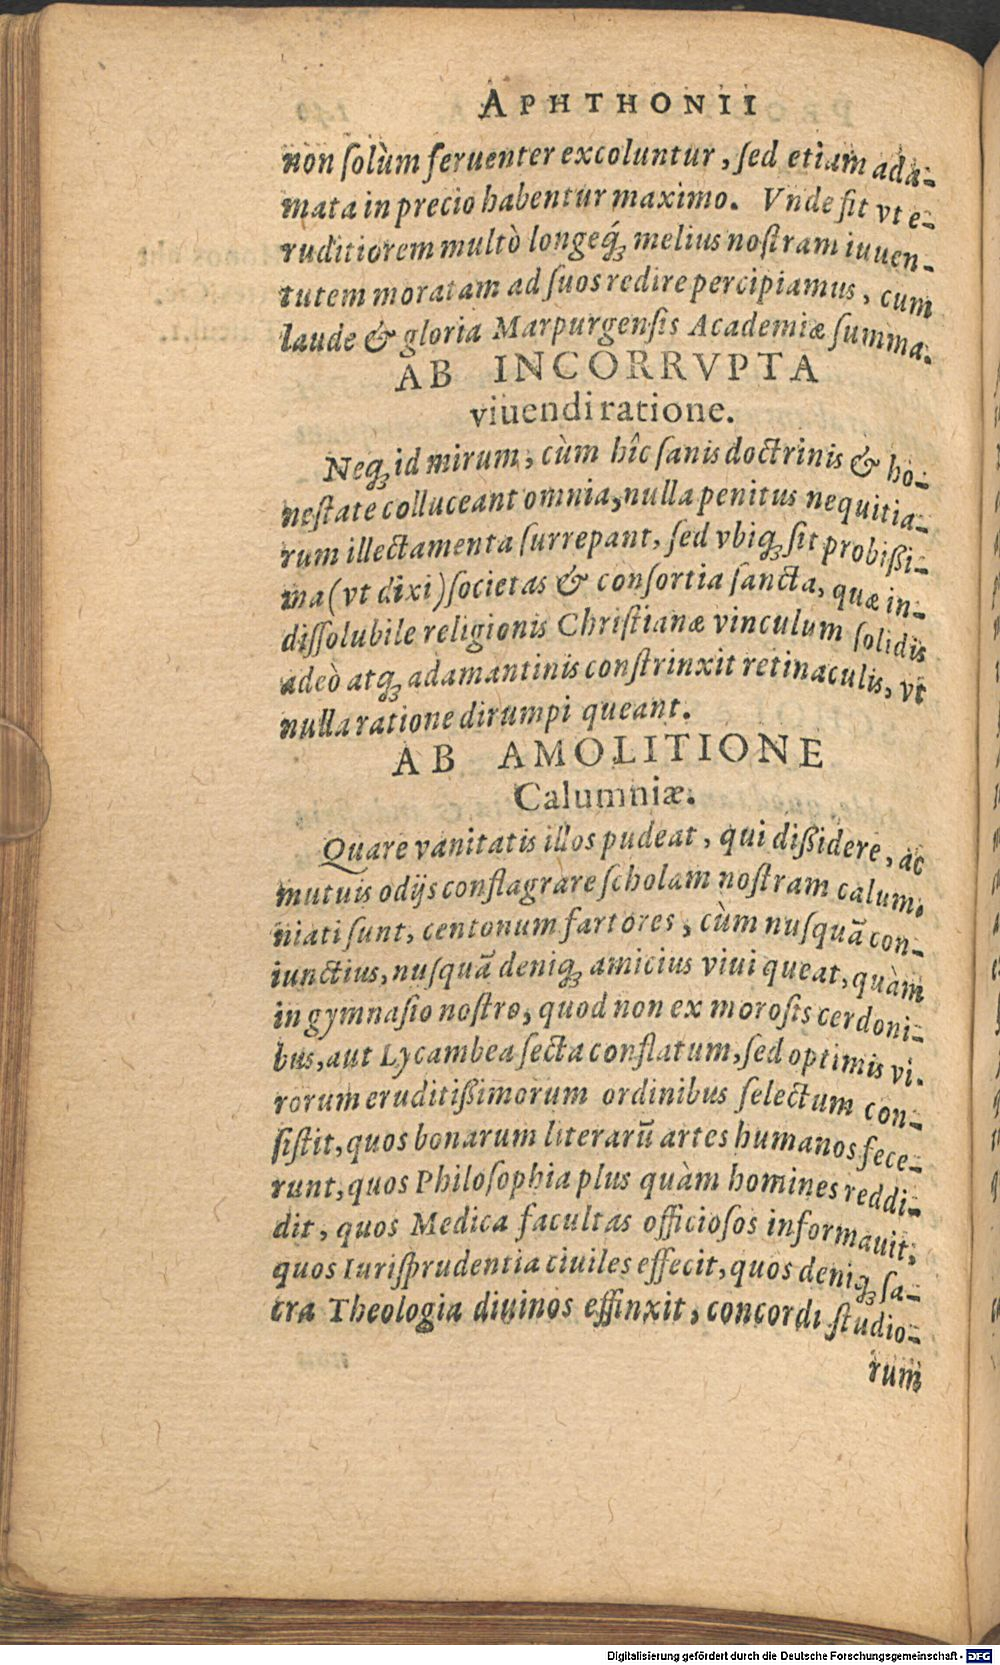 APHTHONII
non ſolùm feruenter excoluntur, ſed etiam ada-
mata in precio habentur maximo. Vnde fit vt e-
ruditiorem multò longeq́ꝫ melius noſtram iuuen-
tutem moratam ad ſuos redire percipiamus, cum
laude & gloria Marpurgenſis Academiæ ſumma.
AB INCORRVPTA
viuendi ratione.
Neqꝫ id mirum, cùm hîc ſanis doctrinis & ho-
neſtate colluceant omnia, nulla penitus nequitia-
rum illectamenta ſurrepant, ſed vbiqꝫ ſit probißi-
ma (vt dixi) ſocietas & conſortia ſancta, quæ in-
diſſolubile religionis Chriſtianæ vinculum ſolidis
adeò atqꝫ adamantinis conſtrinxit retinaculis, vt
nulla ratione dirumpi queant.
AB AMOLITIONE
Calumniæ.
Quare vanitatis illos pudeat, qui dißidere, ac
mutuis odijs conflagrare ſcholam noſtram calum-
niati ſunt, centonum fartores, cùm nuſquã con-
iunctius, nuſquã deniqꝫ amicius viui queat, quàm
in gymnaſio noſtro, quod non ex moroſis cerdoni-
bus, aut Lycambea ſecta conflatum, ſed optimis vi-
rorum eruditißimorum ordinibus ſelectum con-
ſiſtit, quos bonarum literarũ artes humanos fece-
runt, quos Philoſophia plus quàm homines reddi-
dit, quos Medica facultas officioſos informauit,
quos Iuriſprudentia ciuiles effecit, quos deniqꝫ ſa-
cra Theologia diuinos effinxit, concordi ſtudio-
rum
Digitalisierung gefördert durch die Deutsche Forschungsgemeinschaft - DFG